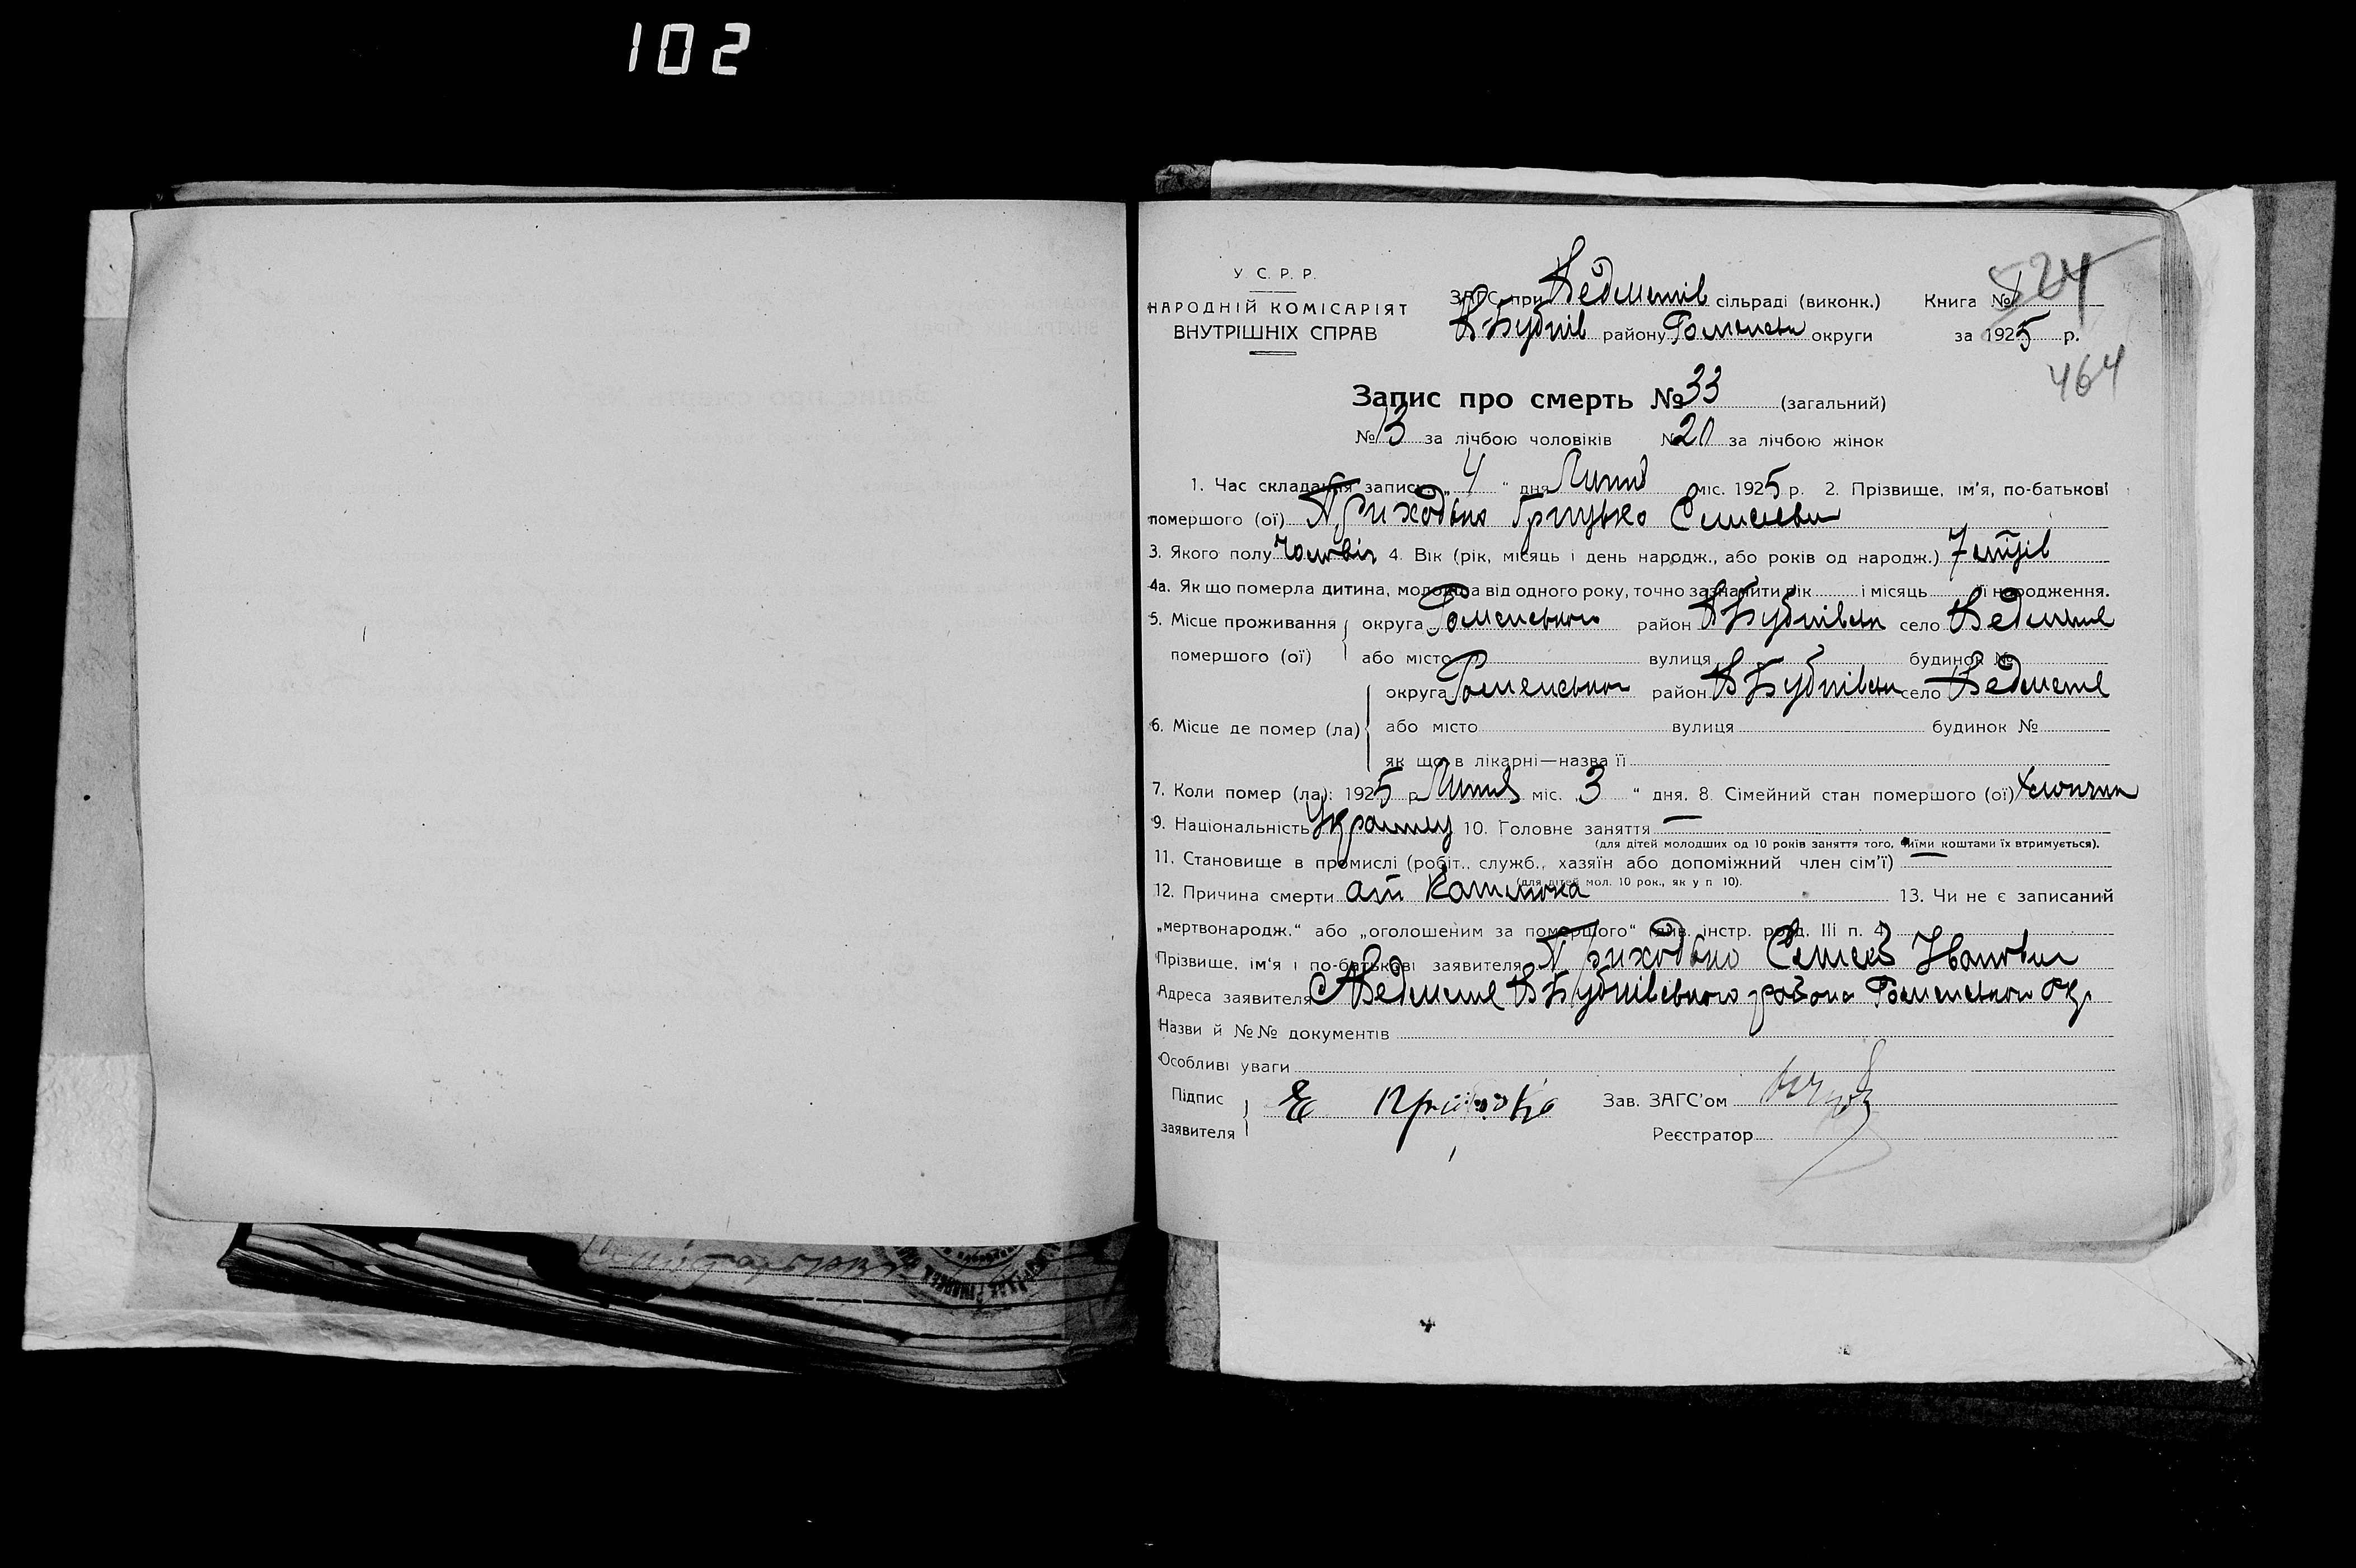 102
У С. Р. Р.
НАРОДНІЙ КОМІСАРІЯТ
ВНУТРІШНІХ СПРАВ
ЗАГС при Ведметів сільраді (виконк.)
В Бубнів району Роменськ округи
Книга № 524
за 1925 р.
464
Запис про смерть № 33 (загальний)
№ 13 за лічбою чоловіків № 20 за лічбою жінок
1. Час складання запису „ 4 “ дня Липня міс. 1925 р. 2. Прізвище, ім'я, по-батькові
помершого (ої) Приходько Грицько Семенови
3. Якого полу 4. Вік (рік, місяць і день народж., або років од народж.) 7 літ
4а. Як що померла дитина, молодша від одного року, точно зазначити рік і місяць її народження.
5. Місце проживання округа Роменського район В Бубнівськ село Ведмеже
помершого (ої) або місто вулиця будинок №
округа Роменського район В Бубнівськ село Ведмеже
6. Місце де помер (ла) або місто вулиця будинок №
як що в лікарні—назва її
7. Коли помер (ла): 1925 р. Липня міс. „ 3 “ дня. 8. Сімейний стан помершого (ої) хлопчик
9. Національність 10. Головне заняття —
(для дітей молодших од 10 років заняття того, чиїми коштами їх втримується).
11. Становище в промислі (робіт., служб., хазяїн або допоміжний член сім'ї) —
(для дітей мол. 10 рок., як у п 10).
12. Причина смерти от Кашлюка 13. Чи не є записаний
„мертвонародж.“ або „оголошеним за помершого“ (див. інстр. розд. III п. 4)
Прізвище, ім'я і по-батькові заявителя Приходько Семен Іванович
Адреса заявителя С Ведмеже В Бубнівського района Роменського Окр
Назви й №№ документів
Особливі уваги
Підпис
заявителя
Зав. ЗАГС'ом
Реєстратор